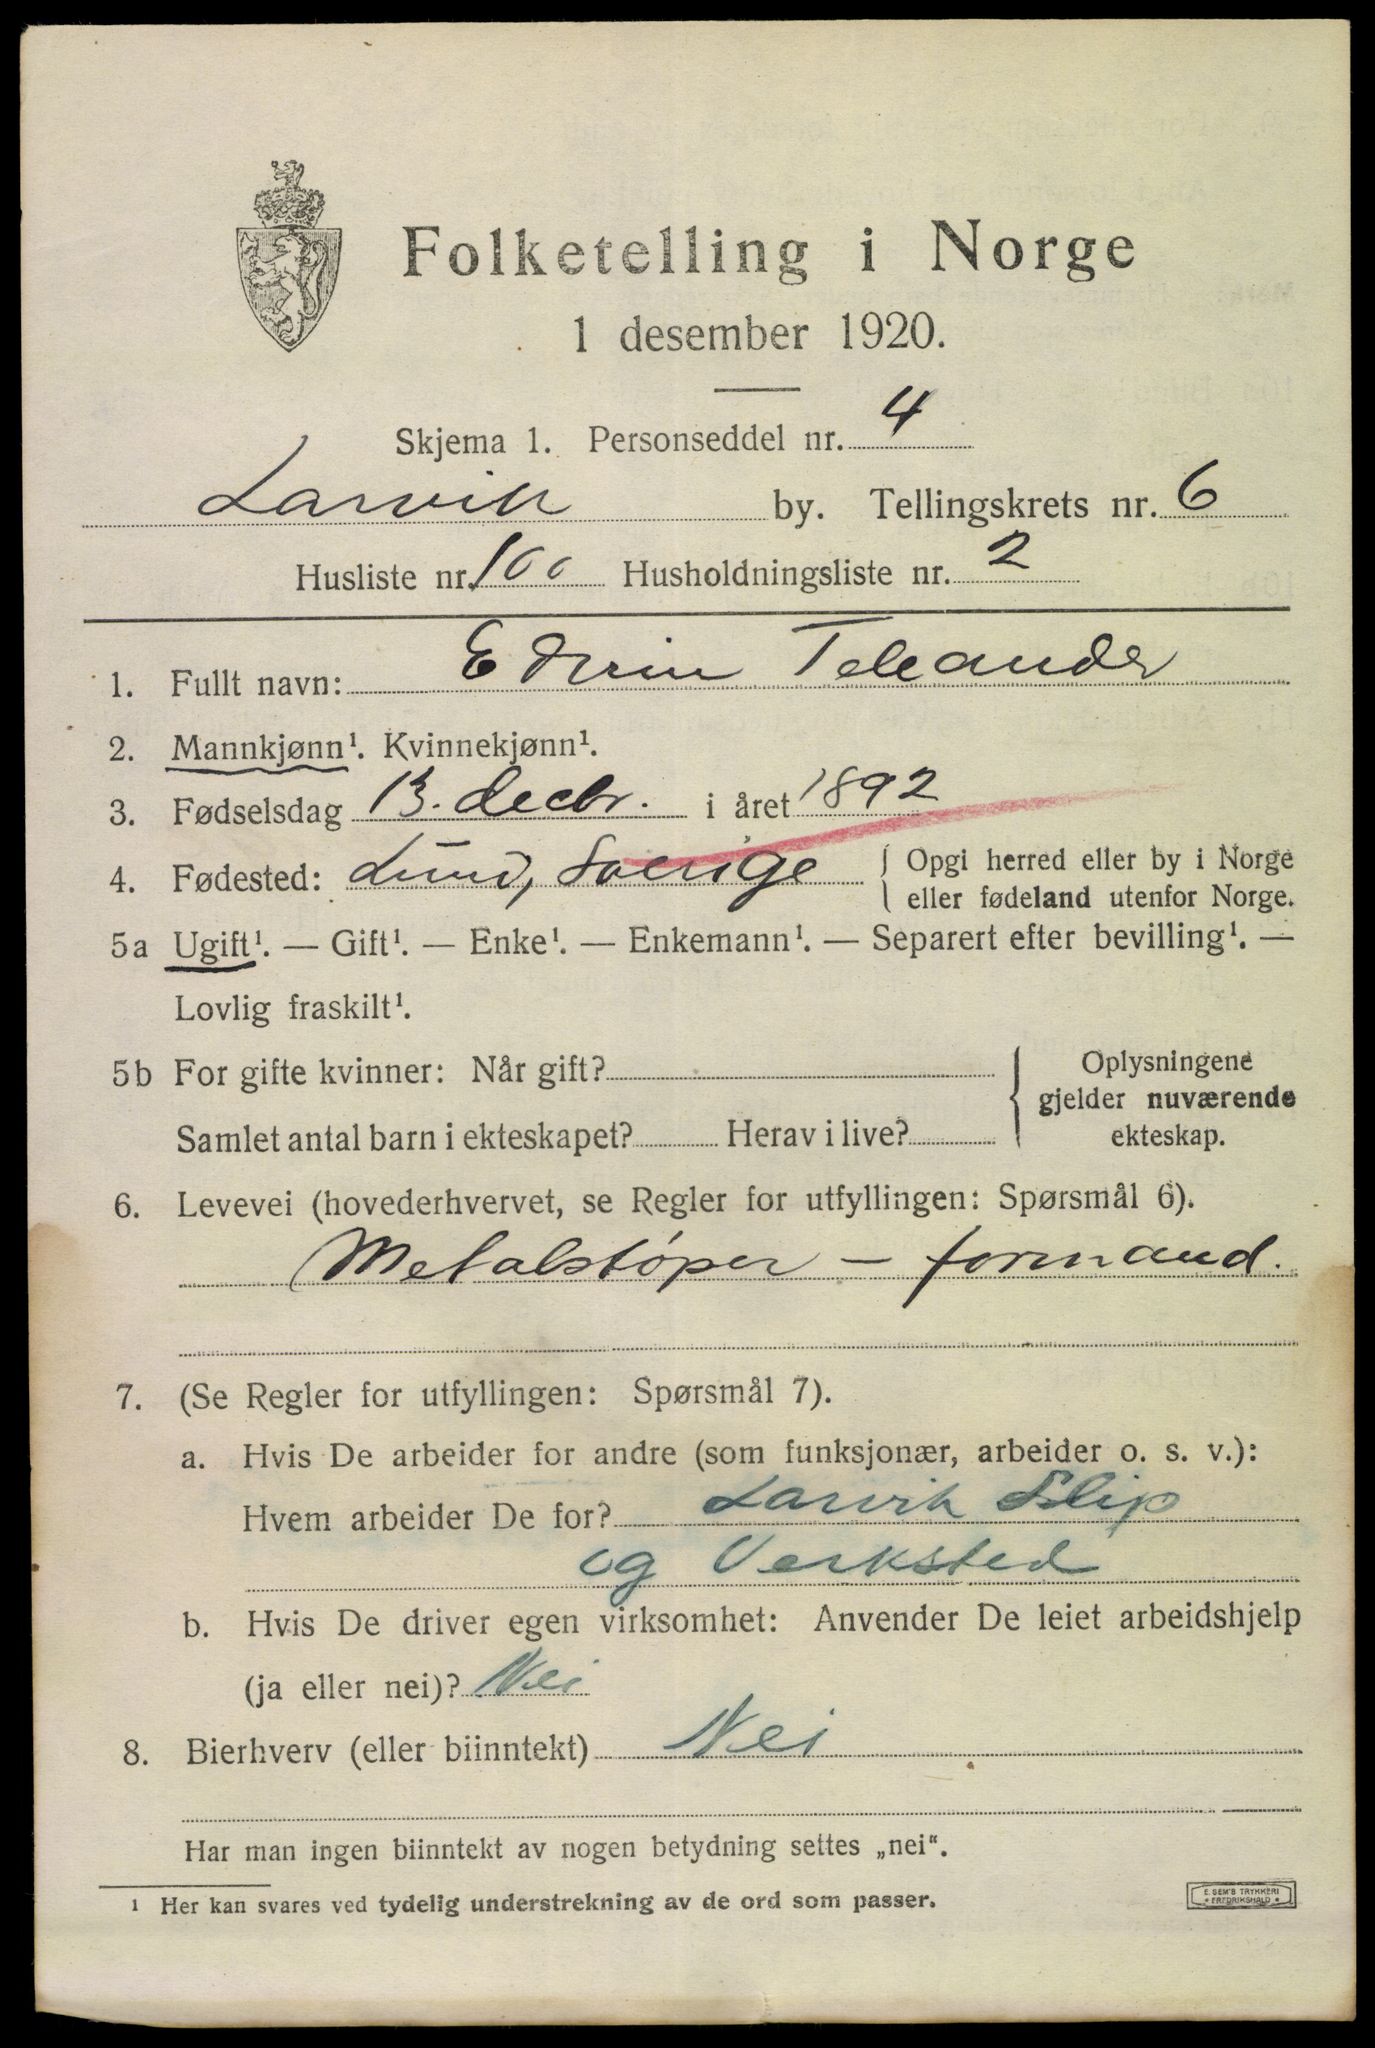 Folketelling i Norge
1 desember 1920.
Skjema 1. Personseddel nr. 4
Larvik by. Tellingskrets nr. 6
Husliste nr. 100 Husholdningsliste nr. 2
1. Fullt navn: Edvin Teleander
2. Mannkjønn¹. Kvinnekjønn¹.
3. Fødselsdag 13. decbr. i året 1892
4. Fødested: Lund, Sverige { Opgi herred eller by i Norge
eller fødeland utenfor Norge.
5a Ugift¹. — Gift¹. — Enke¹. — Enkemann¹. — Separert efter bevilling¹. —
Lovlig fraskilt¹.
5b For gifte kvinner: Når gift? Oplysningene
gjelder nuværende
Samlet antal barn i ekteskapet? Herav i live? ekteskap.
6. Levevei (hovederhvervet, se Regler for utfyllingen: Spørsmål 6).
Metalstøper – formand.
7. (Se Regler for utfyllingen: Spørsmål 7).
a. Hvis De arbeider for andre (som funksjonær, arbeider o. s. v.):
Hvem arbeider De for? Larvik Slip
og Verksted
b. Hvis De driver egen virksomhet: Anvender De leiet arbeidshjelp
(ja eller nei)? Nei
8. Bierhverv (eller biinntekt) Nei
Har man ingen biinntekt av nogen betydning settes „nei“.
¹ Her kan svares ved tydelig understrekning av de ord som passer.
E. SEM'S TRYKKERI
★ FREDRIKSHALD ★